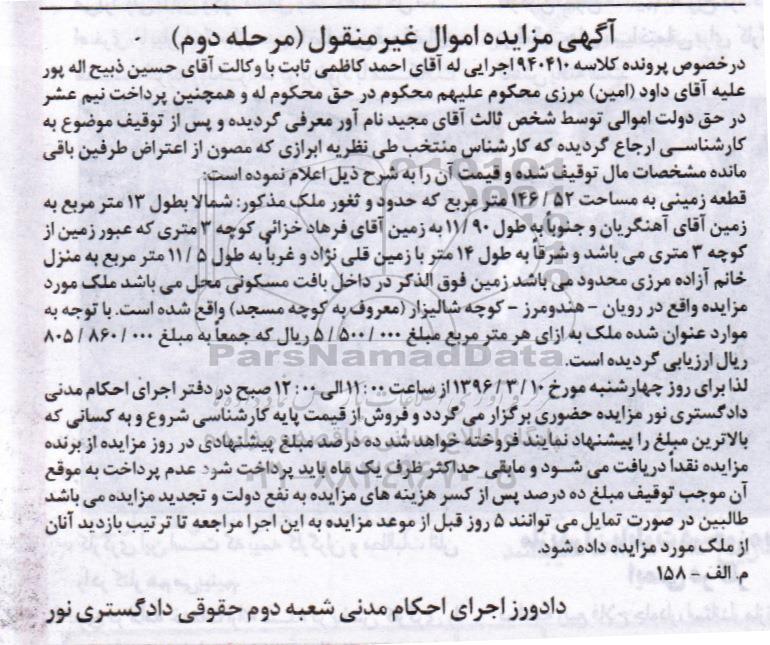 آگهی مزایده اموال غیرمنقول (مرحله دوم)
درخصوص پرونده کلاسه ۹۴۰۴۱۰ اجرایی له آقای احمد کاظمی ثابت با وکالت آقای حسین ذبیح اله پور
علیه آقای داود (امین) مرزی محکوم علیهم محکوم در حق محکوم له و همچنین پرداخت نیم عشر
در حق دولت اموالی توسط شخص ثالث آقای مجید نام آور معرفی گردیده و پس از توقیف موضوع به
کارشناسی ارجاع گردیده که کارشناس منتخب طی نظریه ابرازی که مصون از اعتراض طرفین باقی
مانده مشخصات مال توقیف شده و قیمت آن را به شرح ذیل اعلام نموده است:
قطعه زمینی به مساحت ۱۴۶/۵۲ متر مربع که حدود و ثغور ملک مذکور: شمالا بطول ۱۳ متر مربع به
زمین آقای آهنگریان و جنوباً به طول ۱۱/۹۰ به زمین آقای فرهاد خزائی کوچه ۳ متری که عبور زمین از
کوچه ۳ متری می باشد و شرقاً به طول ۱۴ متر با زمین قلی نژاد و غرباً به طول ۱۱/۵ متر مربع به منزل
خانم آزاده مرزی محدود می باشد زمین فوق الذکر در داخل بافت مسکونی محل می باشد ملک مورد
مزایده واقع در رویان – هندومرز – کوچه شالیزار (معروف به کوچه مسجد) واقع شده است. با توجه به
موارد عنوان شده ملک به ازای هر متر مربع مبلغ ۵/۵۰۰/۰۰۰ ریال که جمعاً به مبلغ ۸۰۵/۸۶۰/۰۰۰
ریال ارزیابی گردیده است.
ParsNamadData
لذا برای روز چهارشنبه مورخ ۱۳۹۶/۳/۱۰ از ساعت ۱۱:۰۰ الی ۱۲:۰۰ صبح در دفتر اجرای احکام مدنی
دادگستری نور مزایده حضوری برگزار می گردد و فروش از قیمت پایه کارشناسی شروع و به کسانی که
بالاترین مبلغ را پیشنهاد نمایند فروخته خواهد شد ده درصد مبلغ پیشنهادی در روز مزایده از برنده
مزایده نقداً دریافت می شود و مابقی حداکثر ظرف یک ماه باید پرداخت شود عدم پرداخت به موقع
آن موجب توقیف مبلغ ده درصد پس از کسر هزینه های مزایده به نفع دولت و تجدید مزایده می باشد
طالبین در صورت تمایل می توانند ۵ روز قبل از موعد مزایده به این اجرا مراجعه تا ترتیب بازدید آنان
از ملک مورد مزایده داده شود.
م. الف – ۱۵۸
دادورز اجرای احکام مدنی شعبه دوم حقوقی دادگستری نور